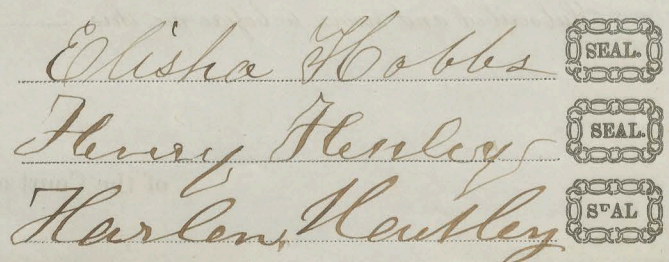 Elisha Hobbs SEAL.
Henry Henley SEAL.
Harlen Hensley SEAL